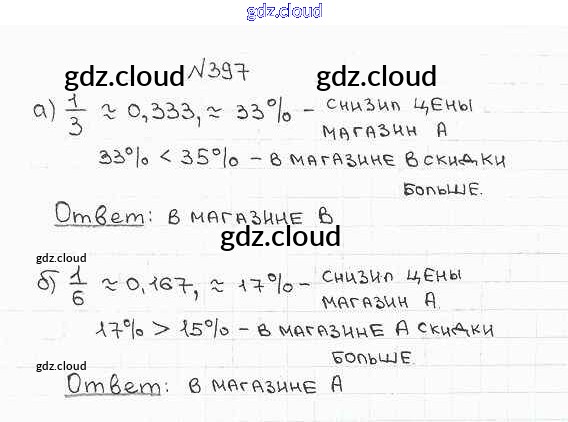 gdz.cloud
№397
gdz.cloud gdz.cloud
а) 1/3 ≈ 0,333, ≈ 33% - снизил цены
магазин А
33% < 35% - в магазине В скидки
больше.
Ответ: в магазине В
gdz.cloud
gdz.cloud
б) 1/6 ≈ 0,167, ≈ 17% - снизил цены
магазин А.
17% > 15% - в магазине А скидки
больше.
gdz.cloud
Ответ: в магазине А